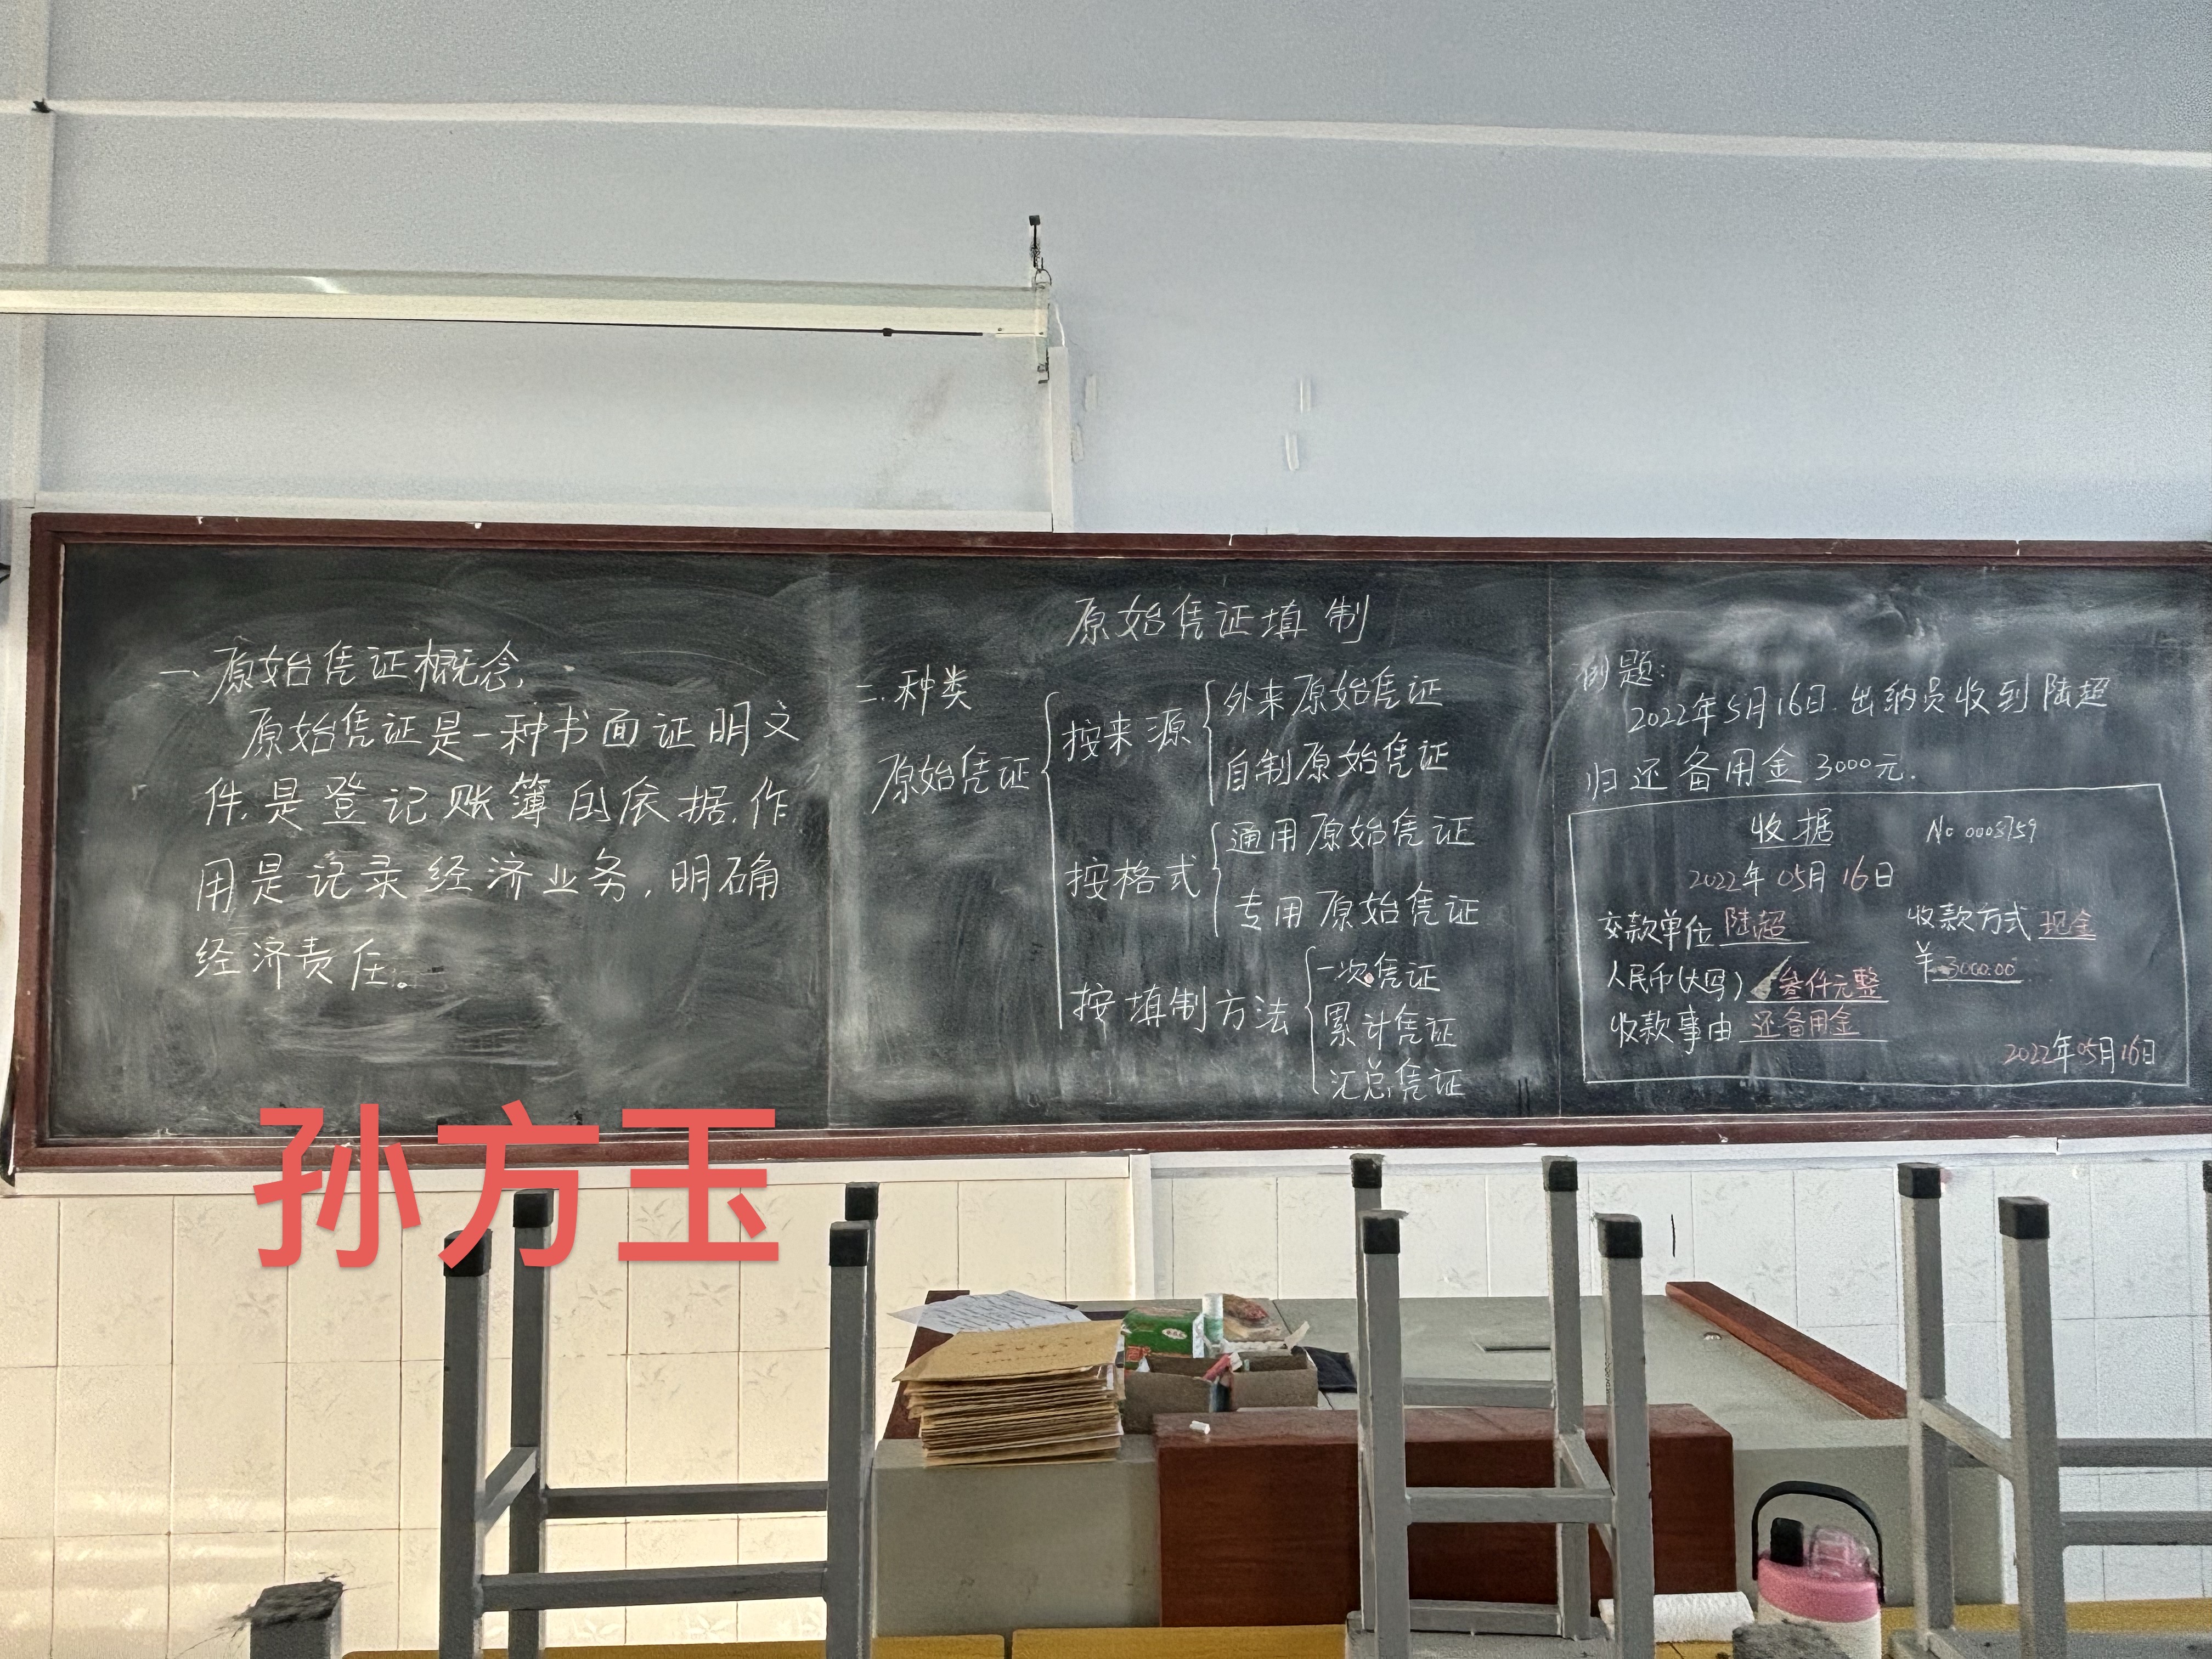 一、原始凭证概念
原始凭证是一种书面证明文
件.是登记账簿的依据.作
用是记录经济业务,明确
经济责任。
原始凭证填制
二.种类
原始凭证
按来源
外来原始凭证
自制原始凭证
按格式
通用原始凭证
专用原始凭证
按填制方法
一次凭证
累计凭证
汇总凭证
例题:
2022年5月16日.出纳员收到陆超
归还备用金3000元.
收据 No 0003759
2022年05月16日
交款单位 陆超 收款方式 现金
人民币(大写) 叁仟元整 ¥3000.00
收款事由 还备用金
2022年05月16日
孙方玉